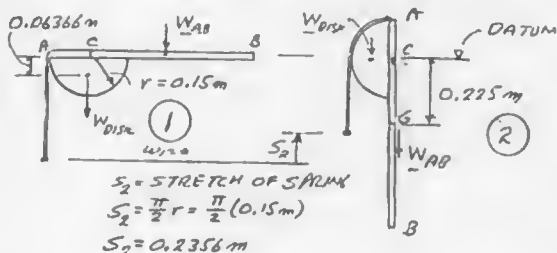 0.06366m
A
C
W_AB
B
r = 0.15m
W_DISK
1
S₂
S₂ = STRETCH OF SPRING
S₂ = π/2 r = π/2 (0.15m)
S₂ = 0.2356m
A
W_DISK
C
DATUM
0.225m
G
2
W_AB
B